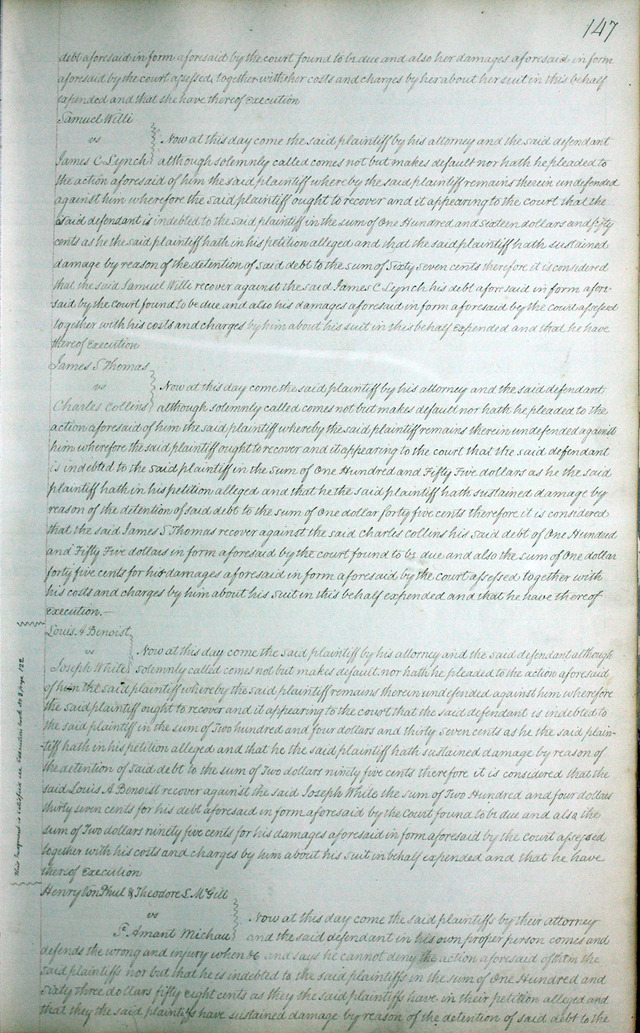 147
debt aforesaid in form aforesaid by the court found to be due and also her damages aforesaid in form
aforesaid by the court assessed together with her costs and charges by her about her suit in this behalf
expended and that she have thereof execution
Samuel Willi
vs
Now at this day come the said plaintiff by his attorney and the said defendant
James C Lynch although solemnly called comes not but makes default nor hath he pleaded to
the action aforesaid of him the said plaintiff whereby the said plaintiff remains therein undefended
against him wherefore the said plaintiff ought to recover and it appearing to the court that the
said defendant is indebted to the said plaintiff in the sum of One Hundred and sixteen dollars and fifty
cents as he the said plaintiff hath in his petition alleged and that the said plaintiff hath sustained
damage by reason of the detention of said debt to the sum of Sixty seven cents therefore it is considered
that the said Samuel Willi recover against the said James C Lynch his debt aforesaid in form afore-
said by the court found to be due and also his damages aforesaid in form aforesaid by the court assessed
together with his costs and charges by him about his suit in this behalf expended and that he have
thereof execution
James S Thomas
vs
Now at this day come the said plaintiff by his attorney and the said defendant
Charles Collins although solemnly called comes not but makes default nor hath he pleaded to the
action aforesaid of him the said plaintiff whereby the said plaintiff remains therein undefended against
him wherefore the said plaintiff ought to recover and it appearing to the court that the said defendant
is indebted to the said plaintiff in the sum of One Hundred and Fifty Five dollars as he the said
plaintiff hath in his petition alleged and that he the said plaintiff hath sustained damage by
reason of the detention of said debt to the sum of one dollar forty five cents therefore it is considered
that the said James S Thomas recover against the said Charles Collins his said debt of One Hundred
and Fifty Five dollars in form aforesaid by the court found to be due and also the sum of One dollar
forty five cents for his damages aforesaid in form aforesaid by the court assessed together with
his costs and charges by him about his suit in this behalf expended and that he have thereof
execution.—
Louis A Benoist
vs
Now at this day come the said plaintiff by his attorney and the said defendant although
Joseph White solemnly called comes not but makes default nor hath he pleaded to the action aforesaid
of him the said plaintiff whereby the said plaintiff remains therein undefended against him wherefore
the said plaintiff ought to recover and it appearing to the court that the said defendant is indebted to
the said plaintiff in the sum of Two hundred and four dollars and thirty seven cents as he the said plain-
tiff hath in his petition alleged and that he the said plaintiff hath sustained damage by reason of
the detention of said debt to the sum of Two dollars ninety five cents therefore it is considered that the
said Louis A Benoist recover against the said Joseph White the sum of Two Hundred and four dollars
thirty seven cents for his debt aforesaid in form aforesaid by the court found to be due and also the
sum of Two dollars ninety five cents for his damages aforesaid in form aforesaid by the court assessed
together with his costs and charges by him about his suit in behalf expended and that he have
thereof execution
this Judgment is satisfied see Execution book page 122
Henry Von Phul & Theodore L McGill
vs
Now at this day come the said plaintiffs by their attorney
St Amant Michau and the said defendant in his own proper person comes and
defends the wrong and injury when &c and says he cannot deny the action aforesaid of them the
said plaintiffs nor but that he is indebted to the said plaintiffs in the sum of One Hundred and
sixty three dollars fifty eight cents as they the said plaintiffs have in their petition alleged and
that they the said plaintiffs have sustained damage by reason of the detention of said debt to the